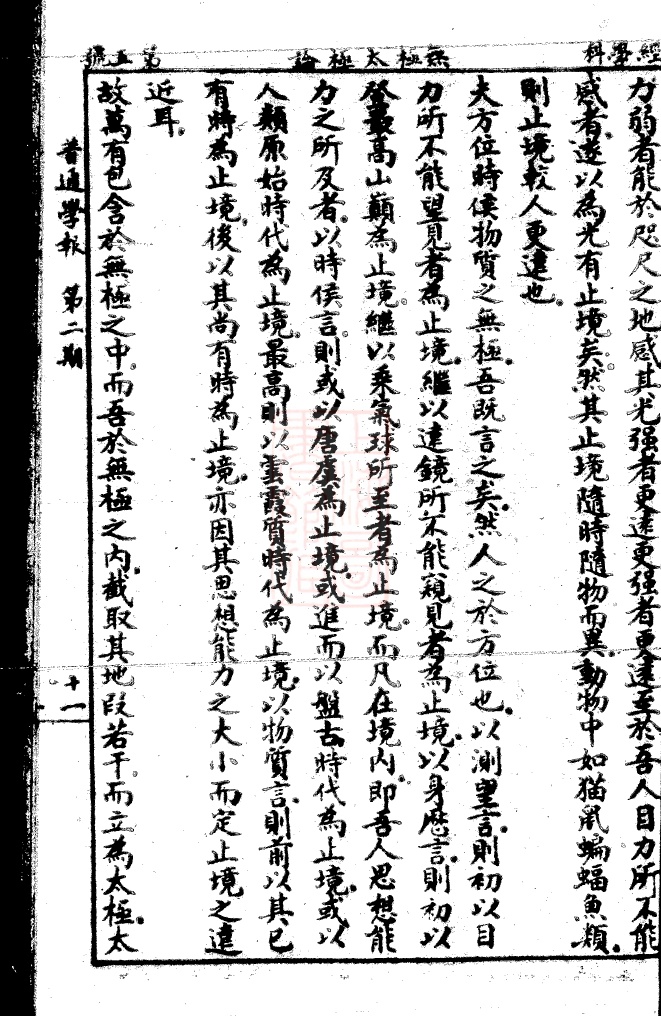 經學科
無極太極論
第五號
力弱者能於咫尺之地感其光强者更遠更强者更遠至於吾人目力所不能
感者遂以為光有止境矣然其止境隨時隨物而異動物中如猫鼠蝙蝠魚類
則止境較人更遠也
夫方位時候物質之無極吾既言之矣然人之於方位也以測望言則初以目
力所不能望見者為止境繼以遠鏡所不能窺見者為止境以身歷言則初以
登最高山巔為止境繼以乘氣球所至者為止境而凡在境內即吾人思想能
力之所及者以時候言則或以唐虞為止境或進而以盤古時代為止境或以
人類原始時代為止境最高則以雲霞質時代為止境以物質言則前以其已
有時為止境後以其尚有時為止境亦因其思想能力之大小而定止境之遠
近耳
故萬有包含於無極之中而吾於無極之內截取其地段若干而立為太極太
普通學報 第二期
十一